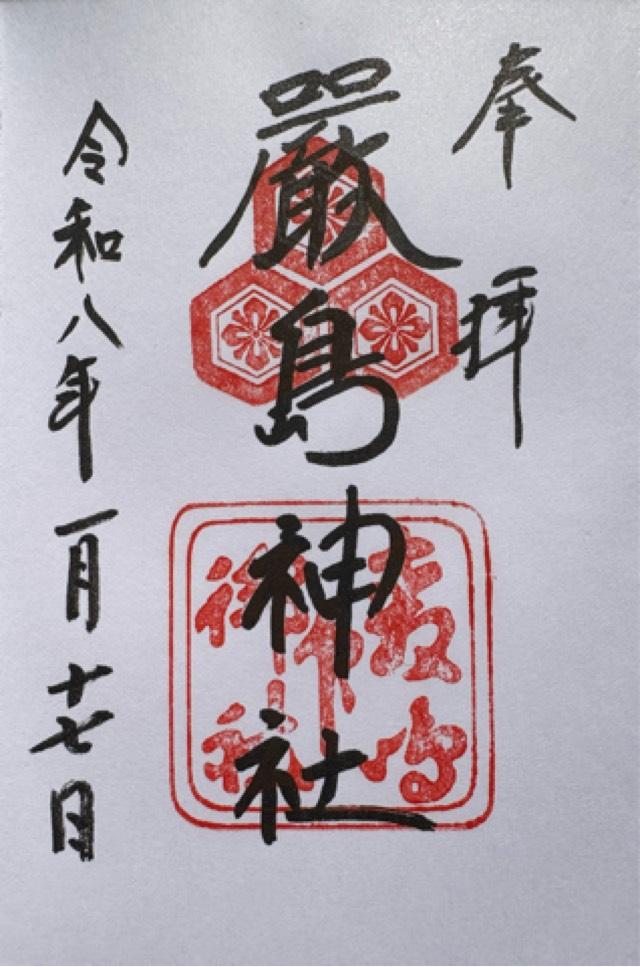 奉拝
厳島神社
令和八年一月十七日